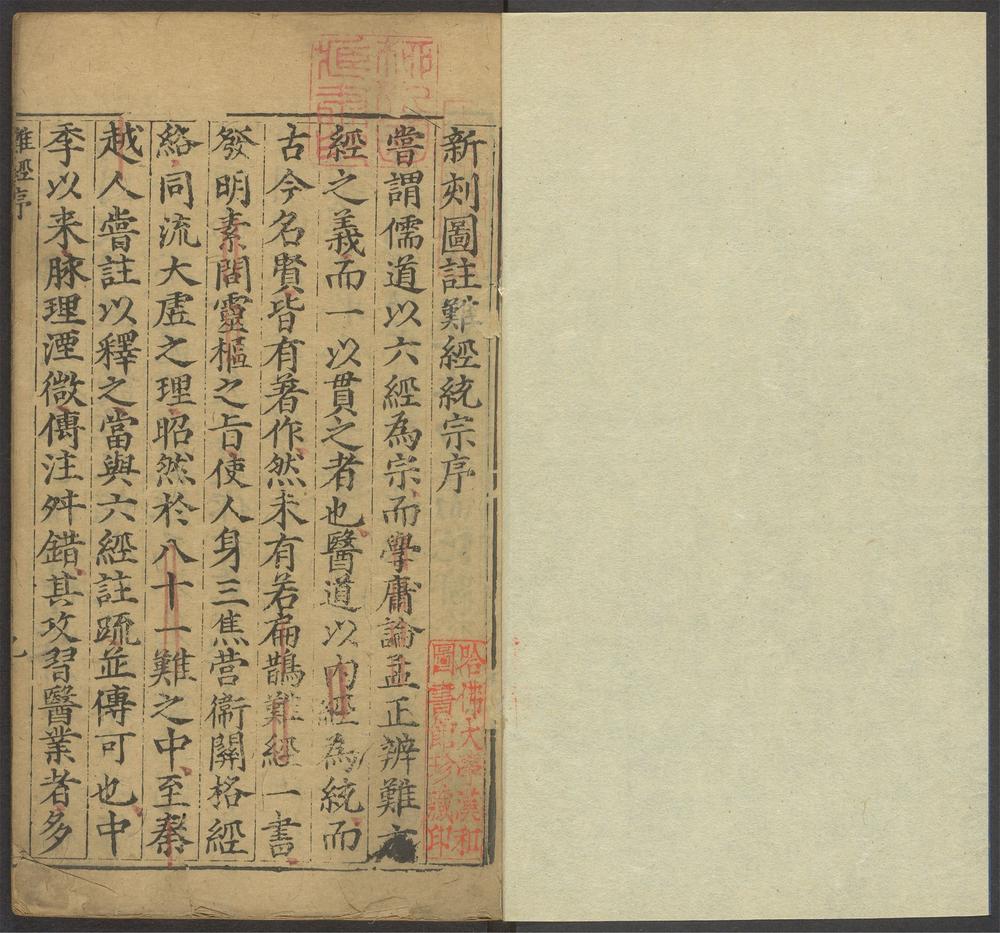 新刻圖註難經統宗序
嘗謂儒道以六經為宗而學庸論孟正辨難六
經之義而一以貫之者也醫道以內經為統而
古今名賢皆有著作然未有若扁鵲難經一書
發明素問靈樞之旨使人身三焦营衛關格經
絡同流大虗之理昭然於八十一難之中至秦
越人嘗註以釋之當與六經註疏並傳可也中
季以来脉理湮微傳注舛錯其攻習醫業者多
難經序
哈佛大學漢和
圖書館珍藏印